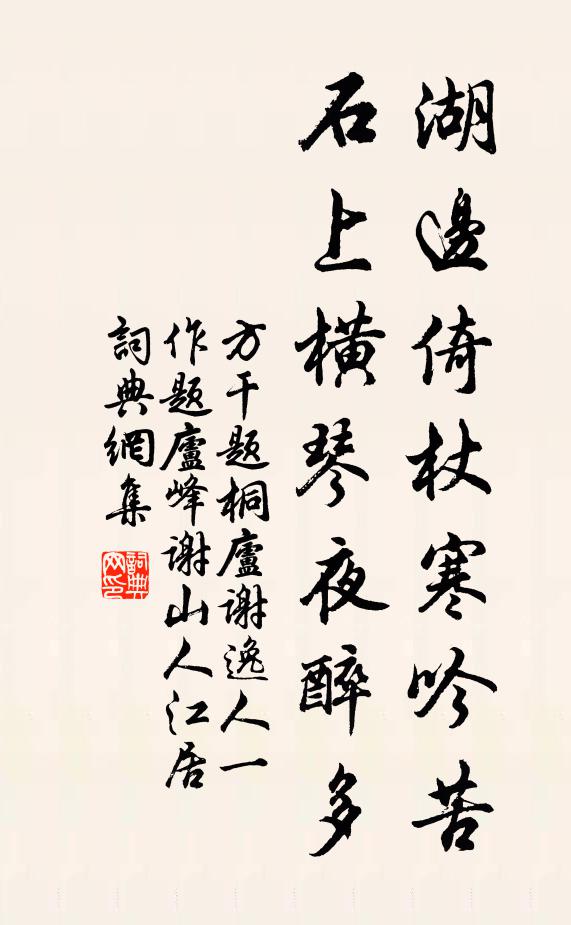 湖邊倚杖寒吟苦
石上橫琴夜醉多
方干题桐廬謝逸人一
作题廬峰謝山人江居
詞典網集
詞典
网印